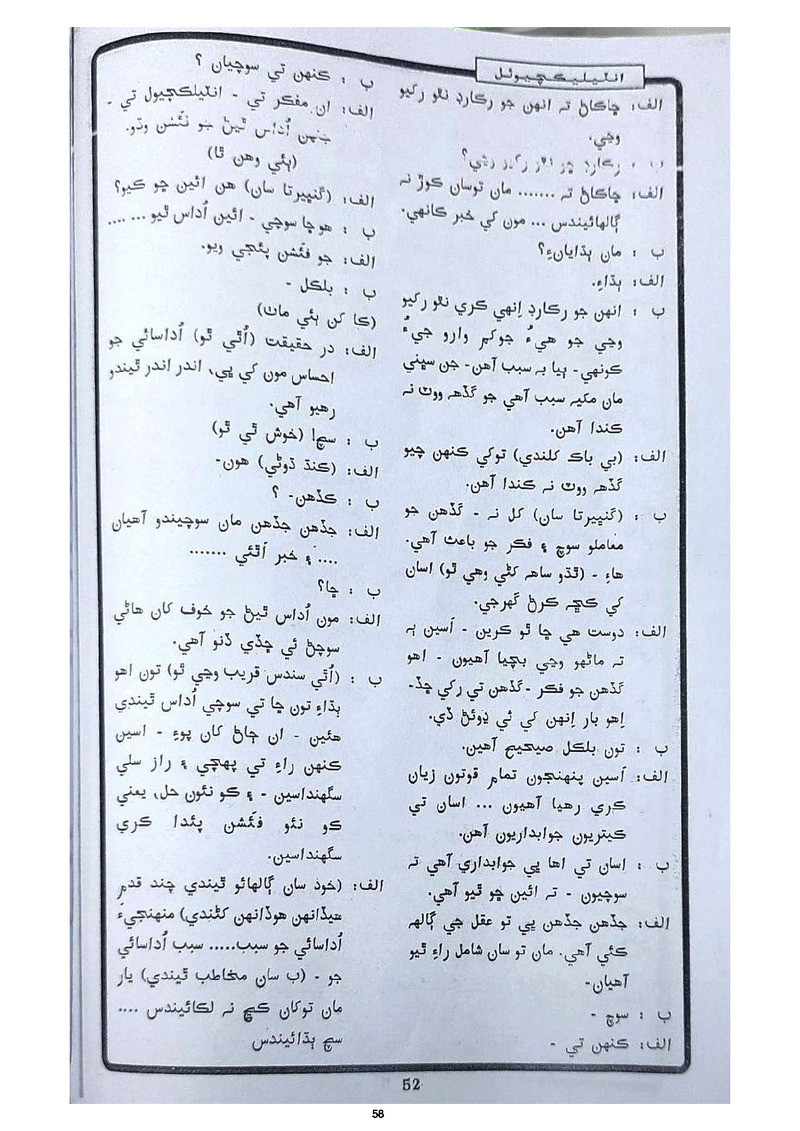 انٽيليڪچيوئل
الف: ڇاڪاڻ تہ انهن جو رڪارڊ نٿو رکيو
وڃي.
ب : رڪارڊ ڇو نٿو رکيو وڃي؟
الف: ڇاڪاڻ تہ ....... مان توسان ڪوڙ نہ
ڳالهائيندس ... مون کي خبر ڪانهي.
ب : مان ٻڌايانءِ؟
الف: ٻڌاءِ.
ب : انهن جو رڪارڊ اِنهي ڪري نٿو رکيو
وڃي جو هيءُ جوکم وارو جيءُ
ڪونهي- ٻيا بہ سبب آهن- جن سڀني
مان مکيہ سبب آهي جو گڏهہ ووٽ نہ
ڪندا آهن.
الف: (بي باڪ کلندي) توکي ڪنهن چيو
گڏهہ ووٽ نہ ڪندا آهن.
ب : (گنڀيرتا سان) کل نہ - گڏهن جو
معاملو سوچ ۽ فڪر جو باعث آهي.
هاءِ - (ٿڌو ساهہ کڻي وهي ٿو) اسان
کي ڪڇہ ڪرڻ گهرجي.
الف: دوست هي ڇا ٿو ڪرين - آسين ٻہ
تہ ماڻهو وڃي بچيا آهيون - اهو
گڏهن جو فڪر -گڏهن تي رکي ڇڏ-
اِهو بار اِنهن کي ئي ڍوئڻ ڏي.
ب : تون بلڪل صحيح آهين.
الف: آسين پنهنجون تمام قوتون زيان
ڪري رهيا آهيون ... اسان تي
ڪيتريون جوابداريون آهن.
ب : اسان تي اها ڀي جوابداري آهي تہ
سوچيون - تہ ائين ڇو ٿيو آهي.
الف: جڏهن جڏهن ڀي تو عقل جي ڳالهہ
ڪئي آهي. مان تو سان شامل راءِ ٿيو
آهيان-
ب : سوچ -
الف: ڪنهن تي -
ب : ڪنهن تي سوچيان ؟
الف: ان مفڪر تي - انٽيلڪچيول تي -
جنهن اُداس ٿيڻ جو فئشن وڌو.
(ٻئي وهن ٿا)
الف: (گنڀيرتا سان) هن ائين ڇو ڪيو؟
ب : هو ڇا سوچي - ائين اُداس ٿيو ... ....
الف: جو فئشن پئجي ويو.
ب : بلڪل -
(ڪا کن ٻئي ماٺ)
الف: در حقيقت (اُٿي ٿو) اُداسائي جو
احساس مون کي ڀي، اندر اندر ٿيندو
رهيو آهي.
ب : سچ! (خوش ٿي ٿو)
الف: (ڪنڌ ڌوڻي) هون-
ب : ڪڏهن- ؟
الف: جڏهن جڏهن مان سوچيندو آهيان
.... ۽ خبر اَٿئي .......
ب : ڇا؟
الف: مون اُداس ٿيڻ جو خوف کان هاڻي
سوچڻ ئي ڇڏي ڏنو آهي.
ب : (اُٿي سندس قريب وڃي ٿو) تون اهو
ٻڌاءِ تون ڇا تي سوچي اُداس ٿيندي
هئين - ان ڄاڻ کان پوءِ - اسين
ڪنهن راءِ تي پهچي ۽ راز سلي
سگهنداسين - ۽ ڪو نئون حل، يعني
ڪو نئو فئشن پئدا ڪري
سگهنداسين.
الف: (خود سان ڳالهائو ٿيندي چند قدم
هيڏانهن هوڏانهن کڻندي) منهنجيءَ
اُداسائي جو سبب..... سبب اُداسائي
جو - (ب سان مخاطب ٿيندي) يار
مان توکان ڪڇ نہ لڪائيندس ....
سچ ٻڌائيندس
52
58